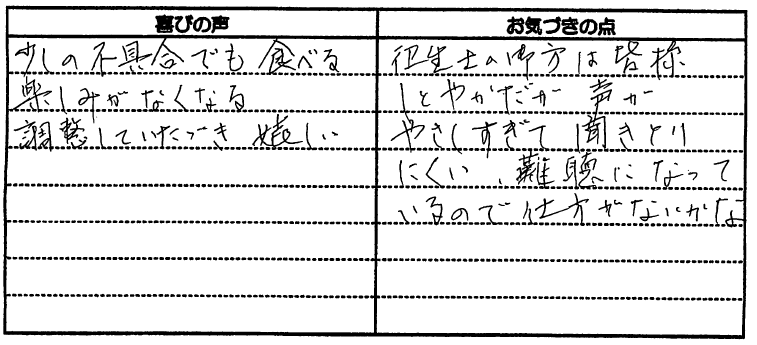 喜びの声
少しの不具合でも食べる
楽しみがなくなる
調整していただき嬉しい
お気づきの点
衛生士の御方は皆様
しとやかだが声が
やさしすぎて聞きとり
にくい、難聴になって
いるので仕方がないがな